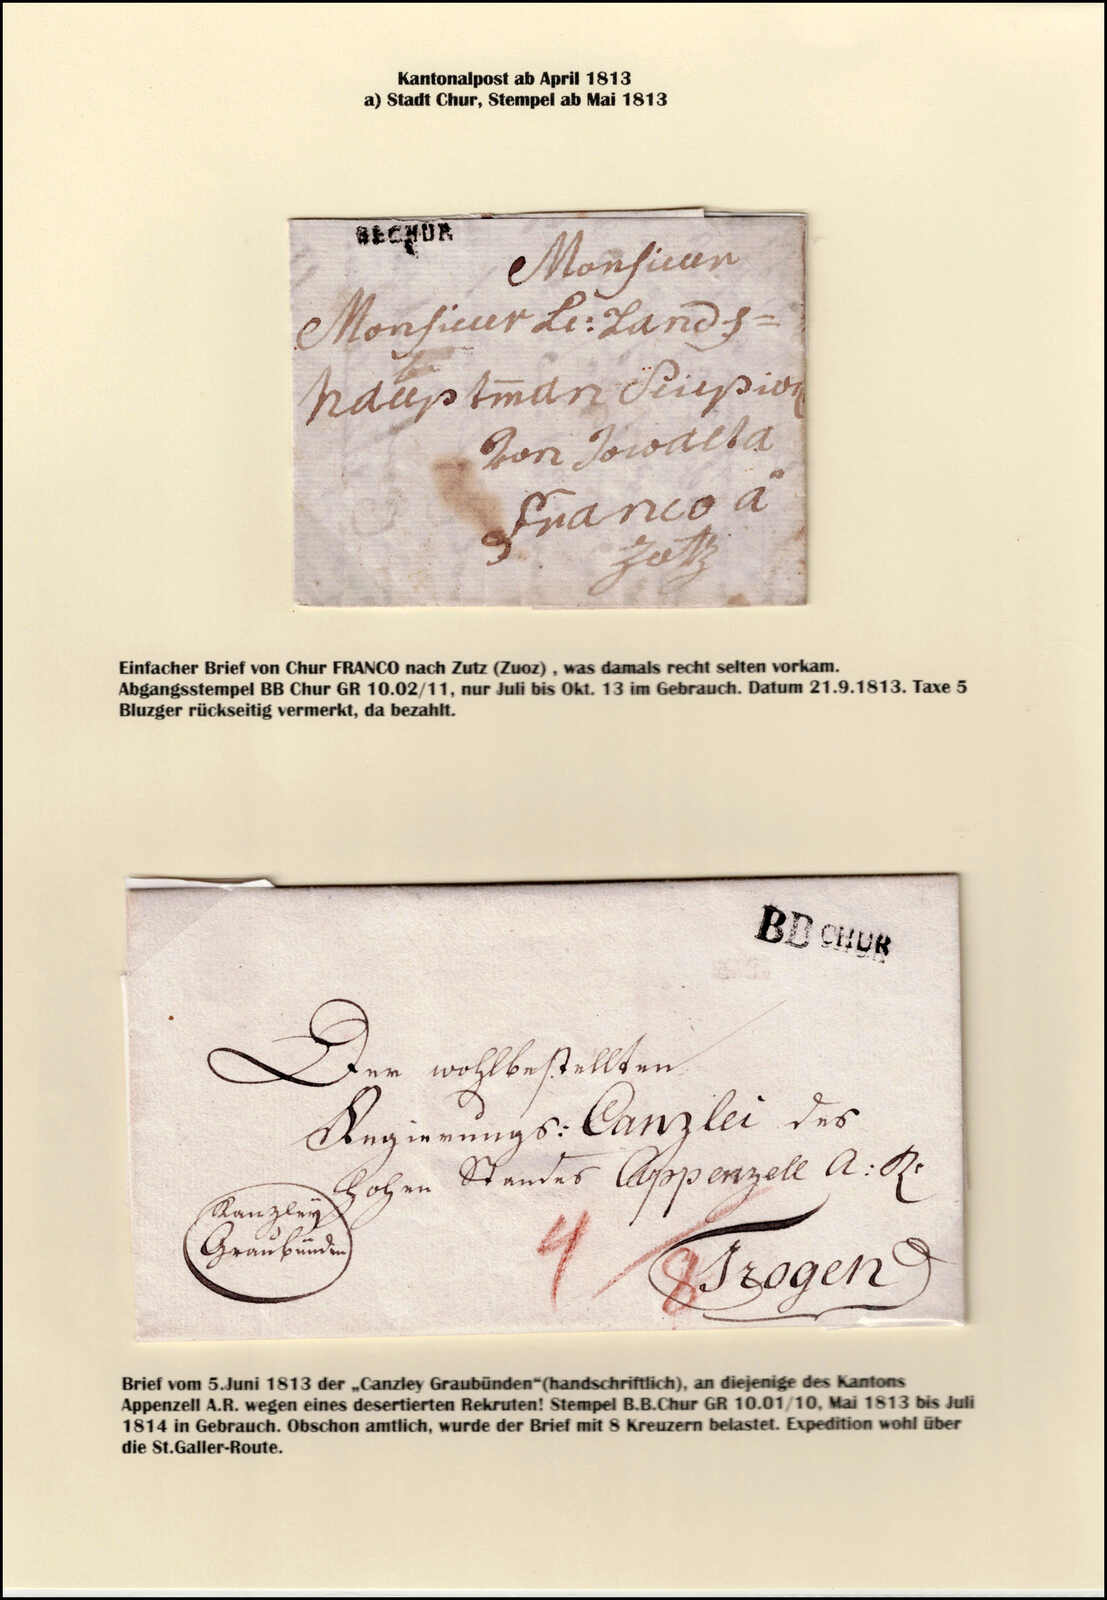 Kantonalpost ab April 1813
a) Stadt Chur, Stempel ab Mai 1813
CHUR
Monsieur
Monsieur Le: Lands=
hauptman
Von
franco a
Zutz
Einfacher Brief von Chur FRANCO nach Zutz (Zuoz) , was damals recht selten vorkam.
Abgangsstempel BB Chur GR 10.02/11, nur Juli bis Okt. 13 im Gebrauch. Datum 21.9.1813. Taxe 5
Bluzger rückseitig vermerkt, da bezahlt.
BB CHUR
Der wohlbestellten
Regierungs: Canzlei des
hohen Standes Appenzell A: R:
Kanzley
Graubünden
4/8
Trogen
Brief vom 5.Juni 1813 der „Canzley Graubünden“(handschriftlich), an diejenige des Kantons
Appenzell A.R. wegen eines desertierten Rekruten! Stempel B.B.Chur GR 10.01/10, Mai 1813 bis Juli
1814 in Gebrauch. Obschon amtlich, wurde der Brief mit 8 Kreuzern belastet. Expedition wohl über
die St.Galler-Route.